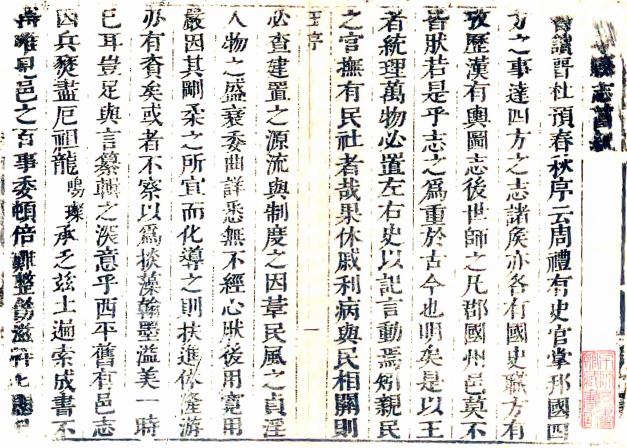 縣志舊叙
嘗讀晋杜預春秋序云周禮有史官掌邦國四
方之事達四方之志諸矦亦各有國史職方有
攷歷漢有輿圖志後世師之凡郡國州邑莫不
皆然若是乎志之爲重於古今也明矣是以王
者統理萬物必置左右史以記言動焉矧親民
之官撫有民社者哉果休戚利病與民相關則
必查建置之源流與制度之因革民風之貞淫
人物之盛衰委曲詳悉無不經心然後用寬用
嚴因其剛柔之所宜而化導之則扶進
亦有賚矣或者不察以爲掞藻翰墨溢美一時
已耳豈足與言纂輯之深意乎西平舊有邑志
因兵燹盡厄祖龍鳴璨承乏兹土遍索成書不
邑之百事委頓倍難整飭